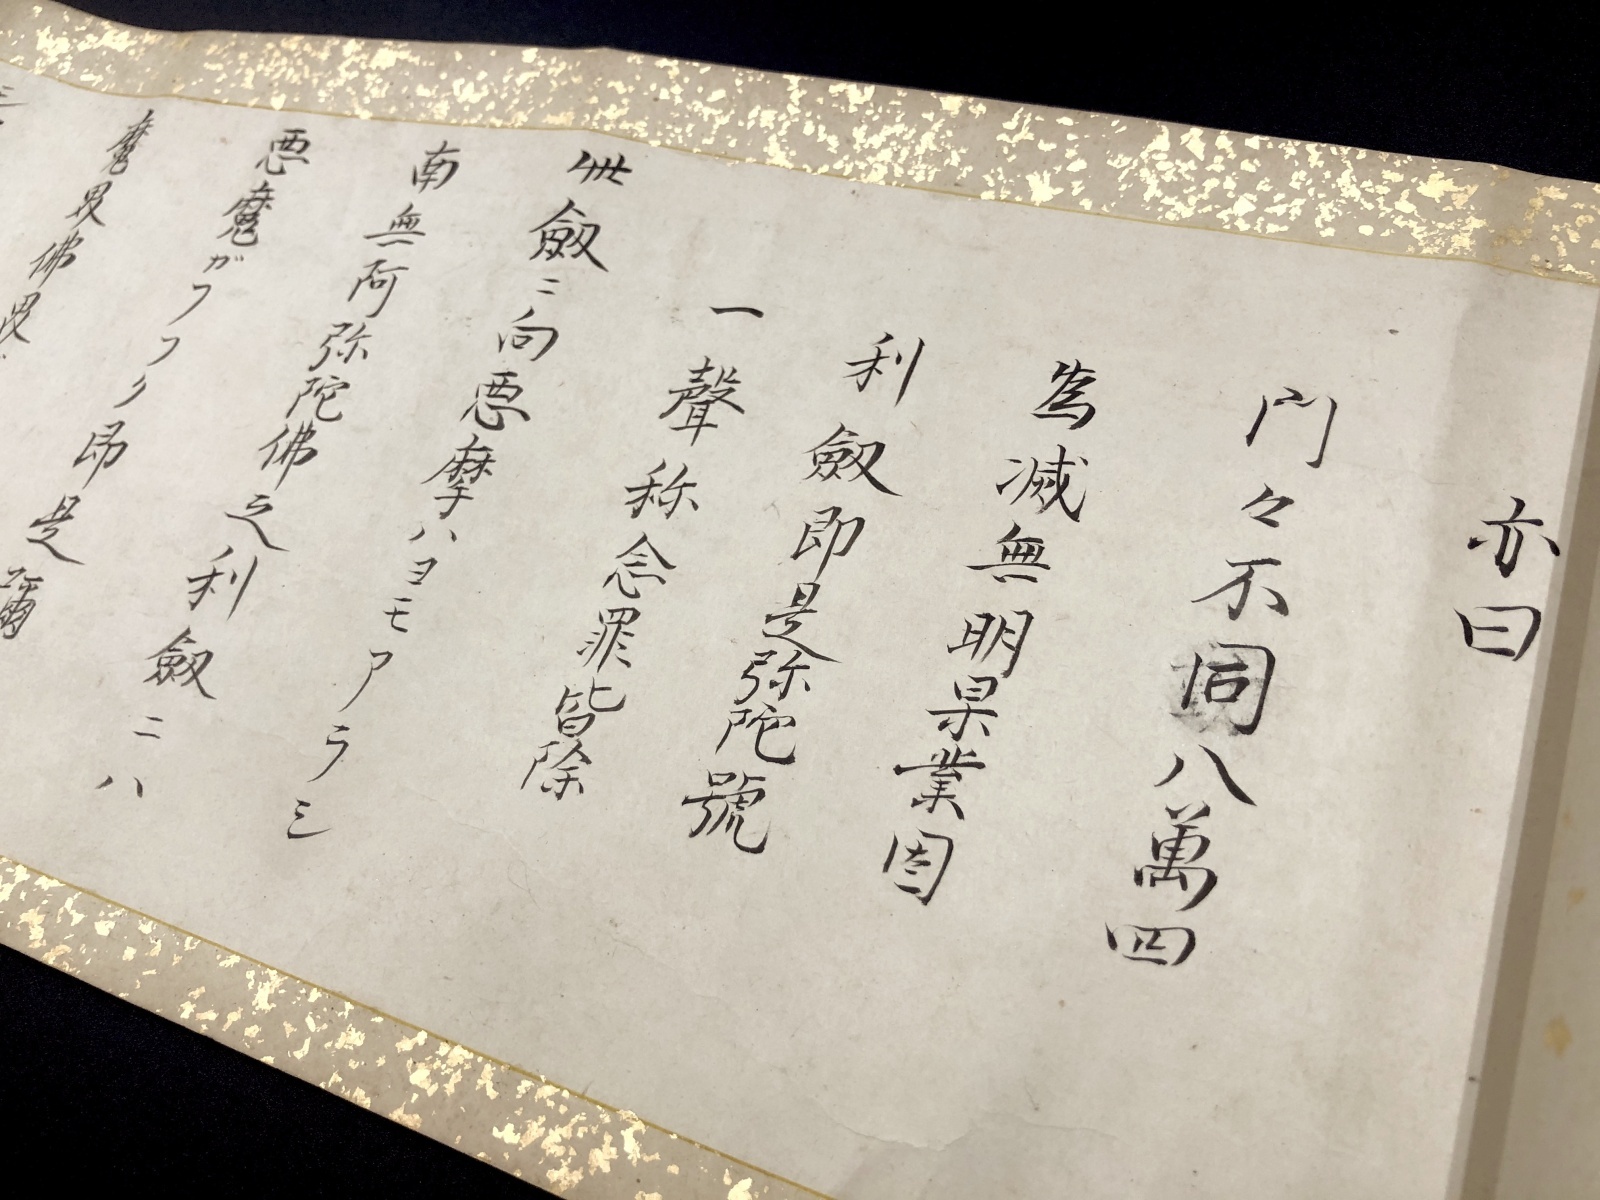 亦曰
門々不同八萬四
為滅無明果業因
利劔即是弥陀號
一聲称念罪皆除
此劔ニ向悪摩ハヨモアラシ
南無阿弥陀佛之利劔ニハ
悪魔ガフフク即是彌
魔界佛界